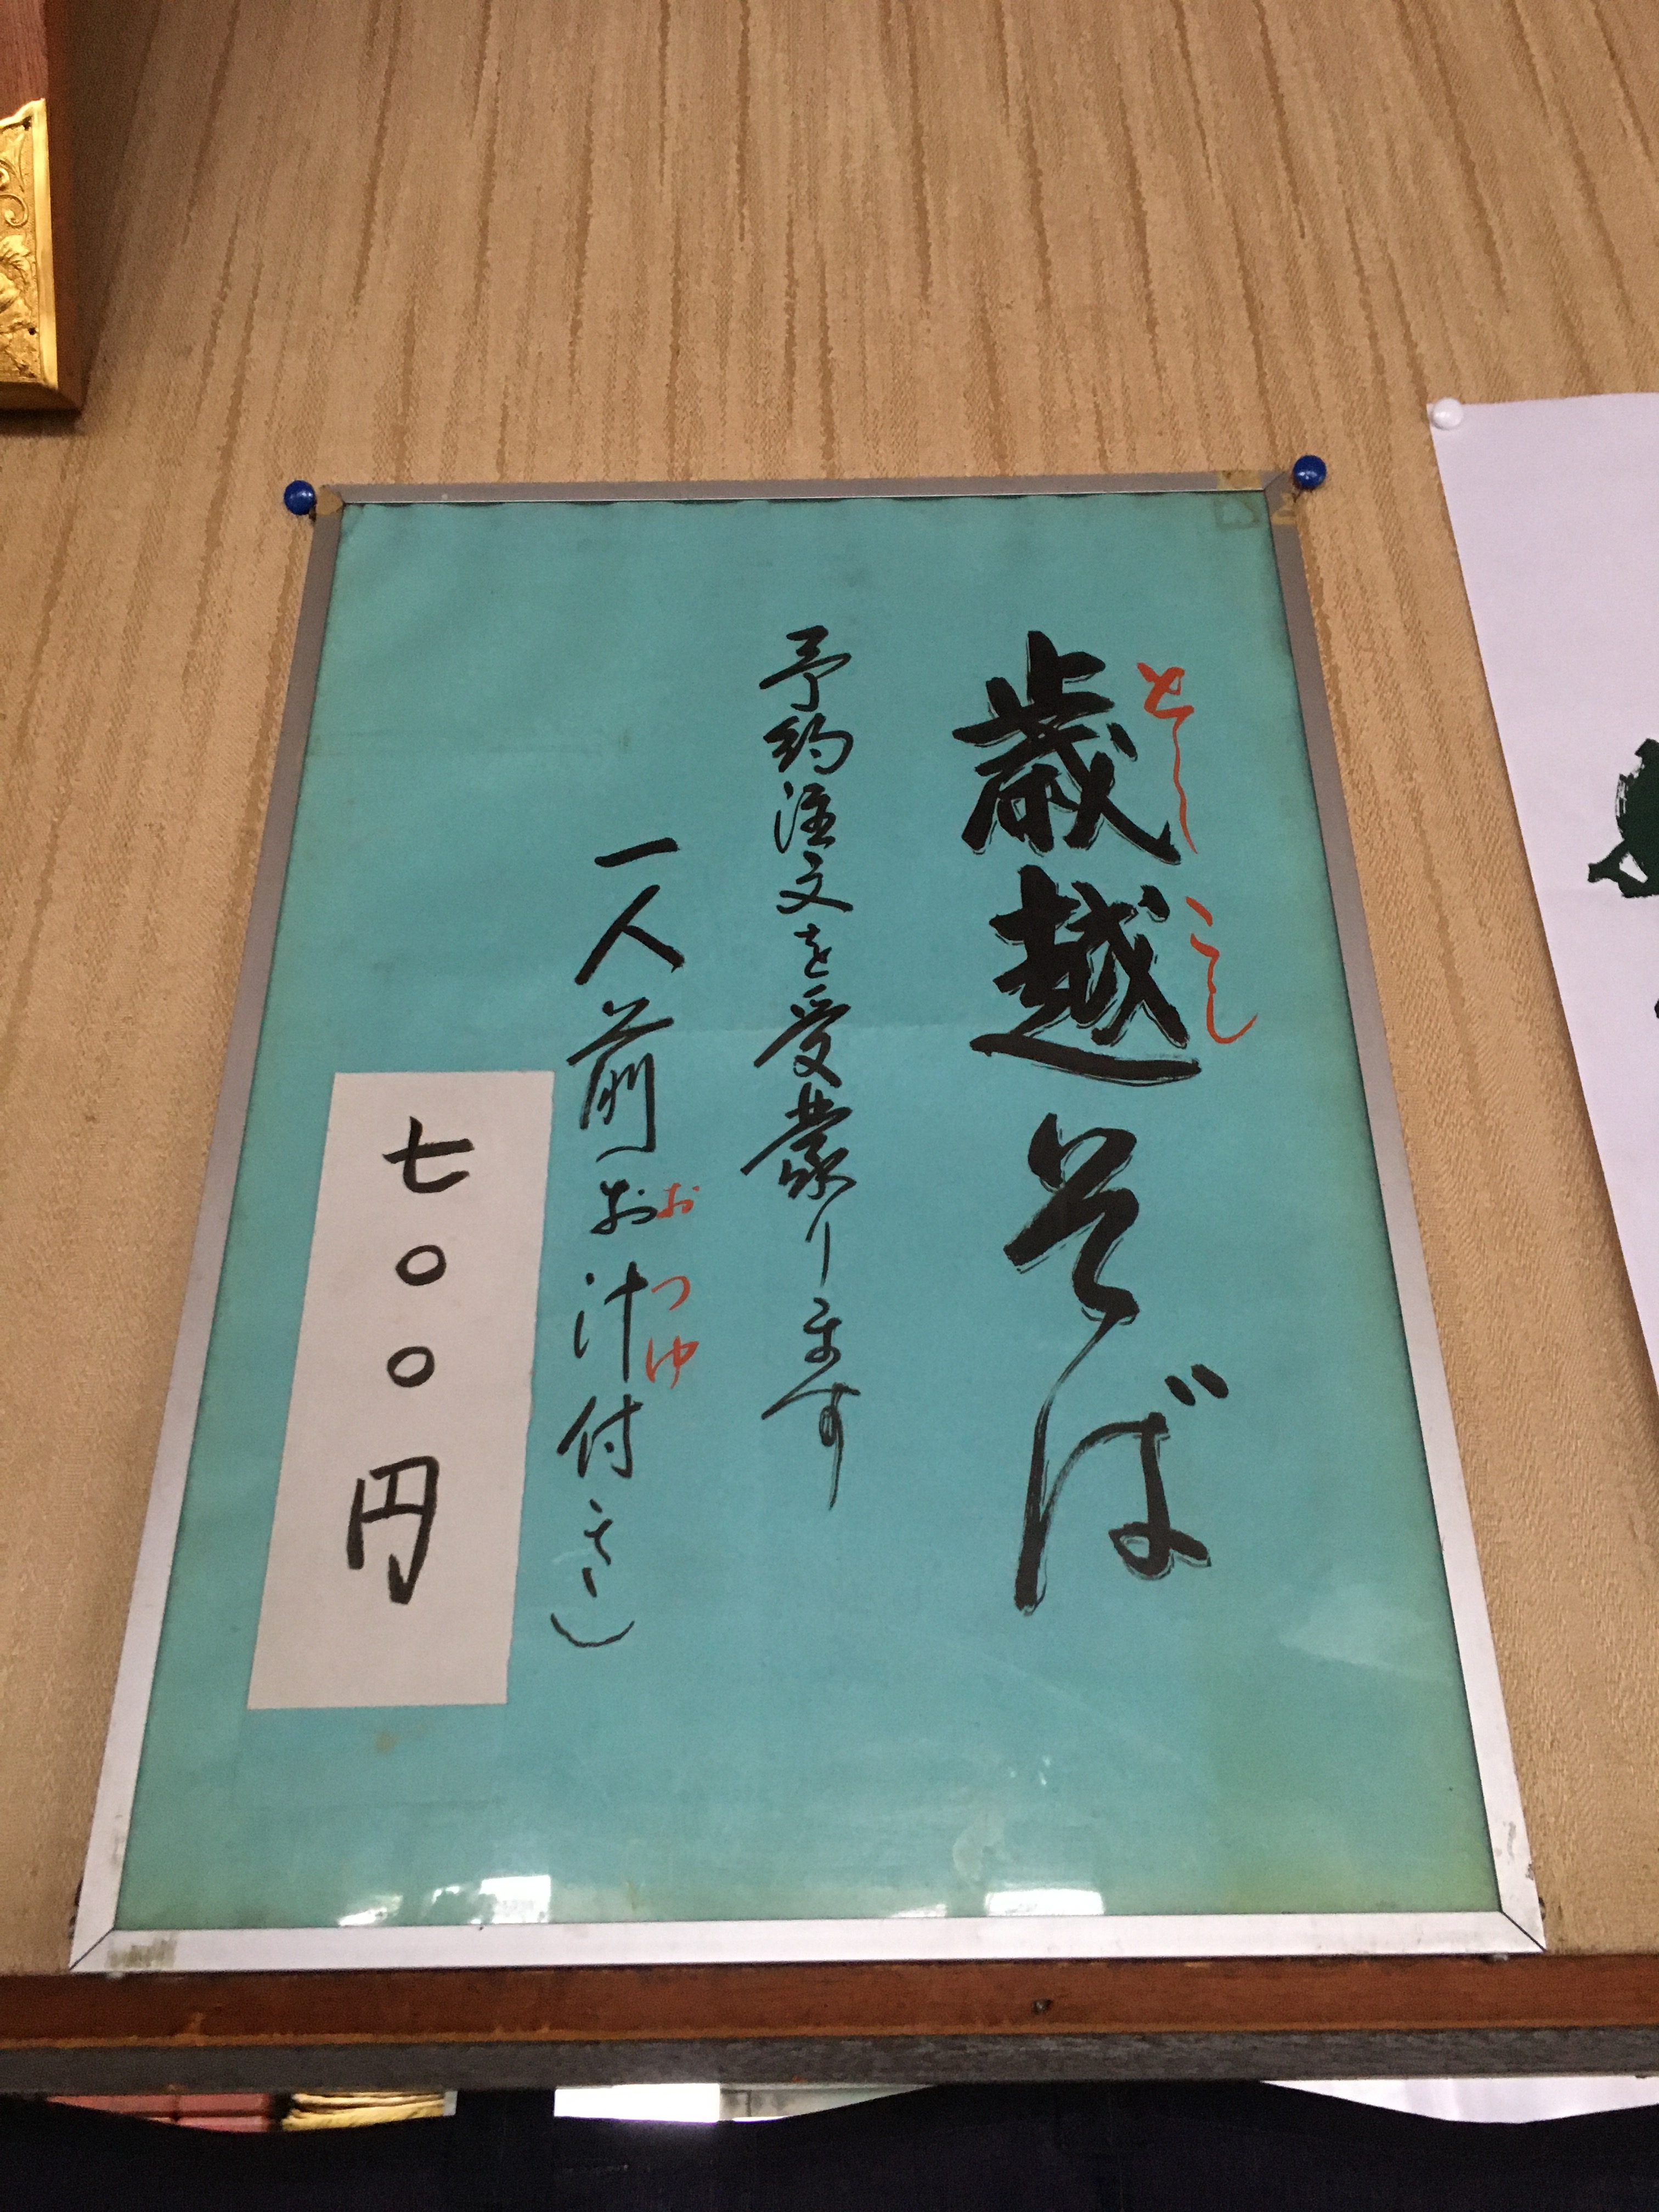 歳越そば
としこし
予約注文を受蒙ります
一人前お汁付き)
おつゆ
七〇〇円